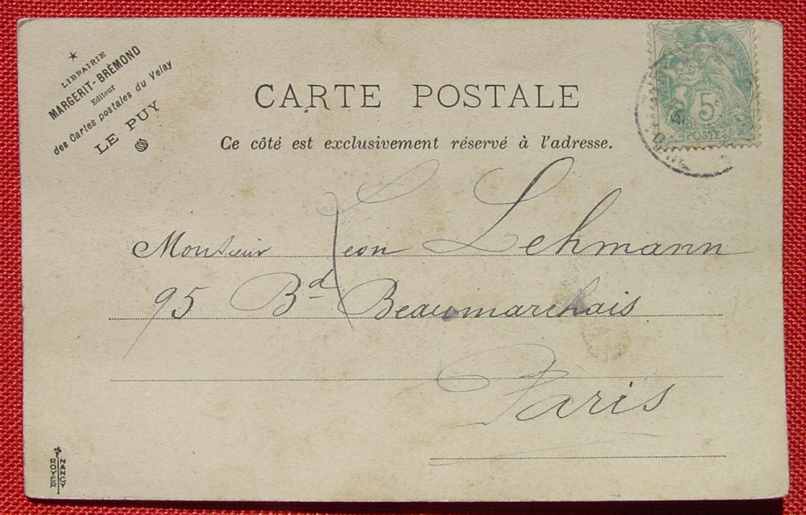 LIBRAIRIE
MARGERIT-BRÉMOND
Editeur
des Cartes postales du Velay
LE PUY
CARTE POSTALE
Ce côté est exclusivement réservé à l'adresse.
5c
POSTES
Monsieur Leon Lehmann
95 Bd Beaumarchais
Paris
ROYER
NANCY